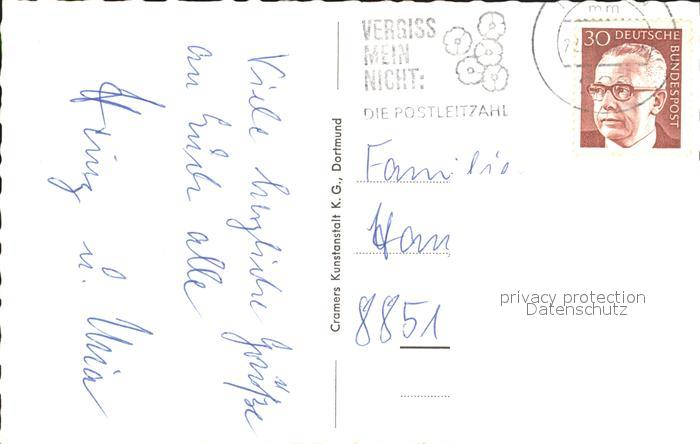 Viele herzliche Grüße
an Euch alle
Heinz u. Maria
Cramers Kunstanstalt K.G., Dortmund
VERGISS
MEIN
NICHT:
DIE POSTLEITZAHL
30 DEUTSCHE
BUNDESPOST
Familie
Han
8851
privacy protection
Datenschutz